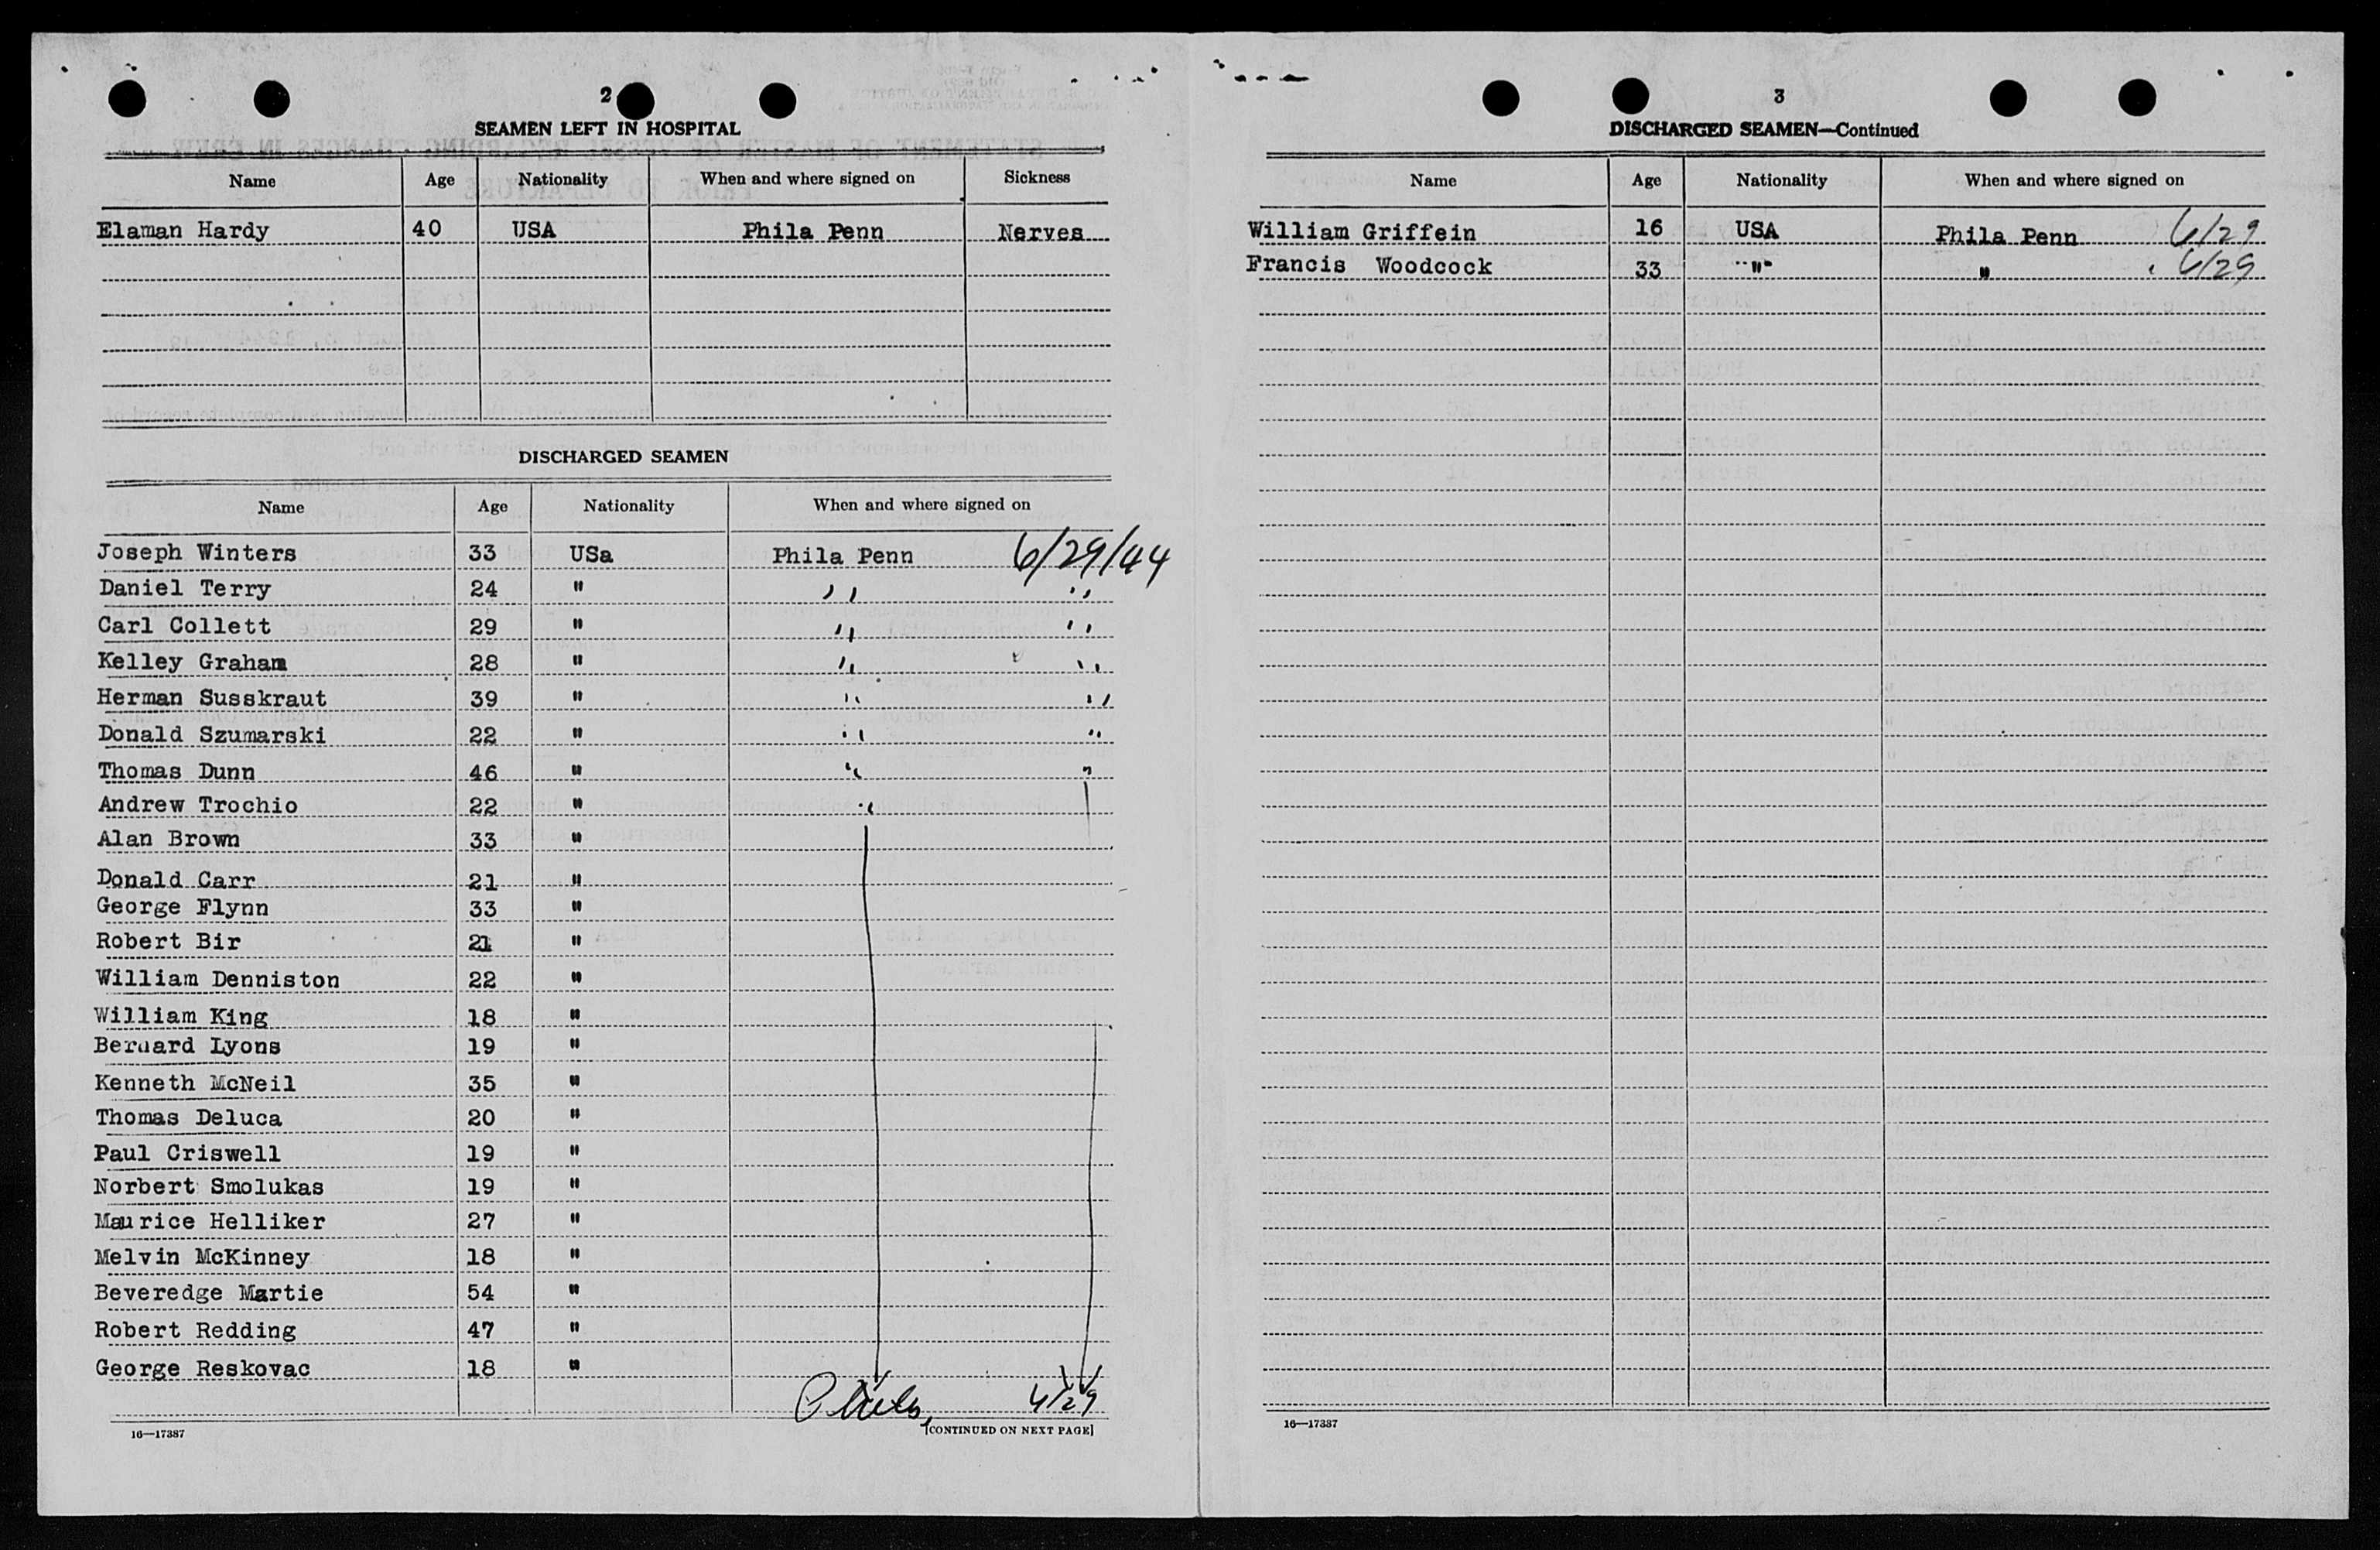 2
SEAMEN LEFT IN HOSPITAL
Name Age Nationality When and where signed on Sickness
Elaman Hardy 40 USA Phila Penn Nerves
DISCHARGED SEAMEN
Name Age Nationality When and where signed on
Joseph Winters 33 USa Phila Penn 6/29/44
Daniel Terry 24 " " "
Carl Collett 29 " " "
Kelley Graham 28 " " "
Herman Susskraut 39 " " "
Donald Szumarski 22 " " "
Thomas Dunn 46 " " "
Andrew Trochio 22 " "
Alan Brown 33 "
Donald Carr 21 "
George Flynn 33 "
Robert Bir 21 "
William Denniston 22 "
William King 18 "
Bernard Lyons 19 "
Kenneth McNeil 35 "
Thomas Deluca 20 "
Paul Criswell 19 "
Norbert Smolukas 19 "
Maurice Helliker 27 "
Melvin McKinney 18 "
Beveredge Martie 54 "
Robert Redding 47 "
George Reskovac 18 "
Phila, 6/29
[CONTINUED ON NEXT PAGE]
16—17387
3
DISCHARGED SEAMEN—Continued
Name Age Nationality When and where signed on
William Griffein 16 USA Phila Penn 6/29
Francis Woodcock 33 " " 6/29
16—17387